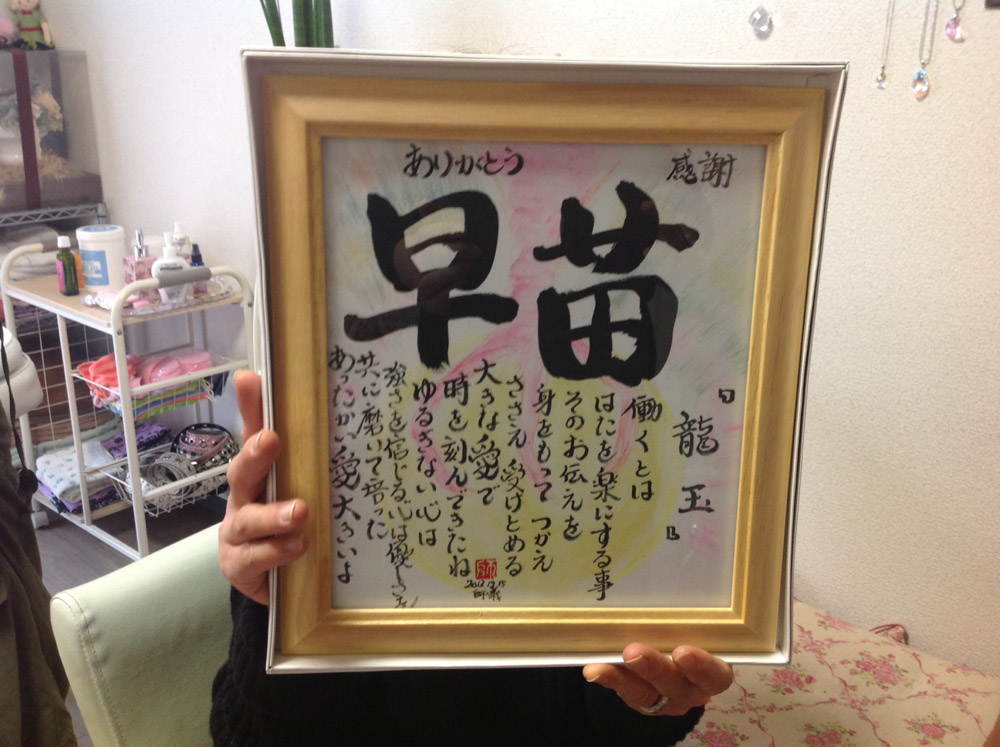 ありがとう
感謝
早苗
『龍玉』
働くとは
はたを楽にする事
そのお伝えを
身をもって つかえ
ささえ 受けとめる
大きな愛で
時を刻んできたね
ゆるぎない心は
強さを信じる心は優しさを
共に磨いて培った
あったかい愛大きいよ